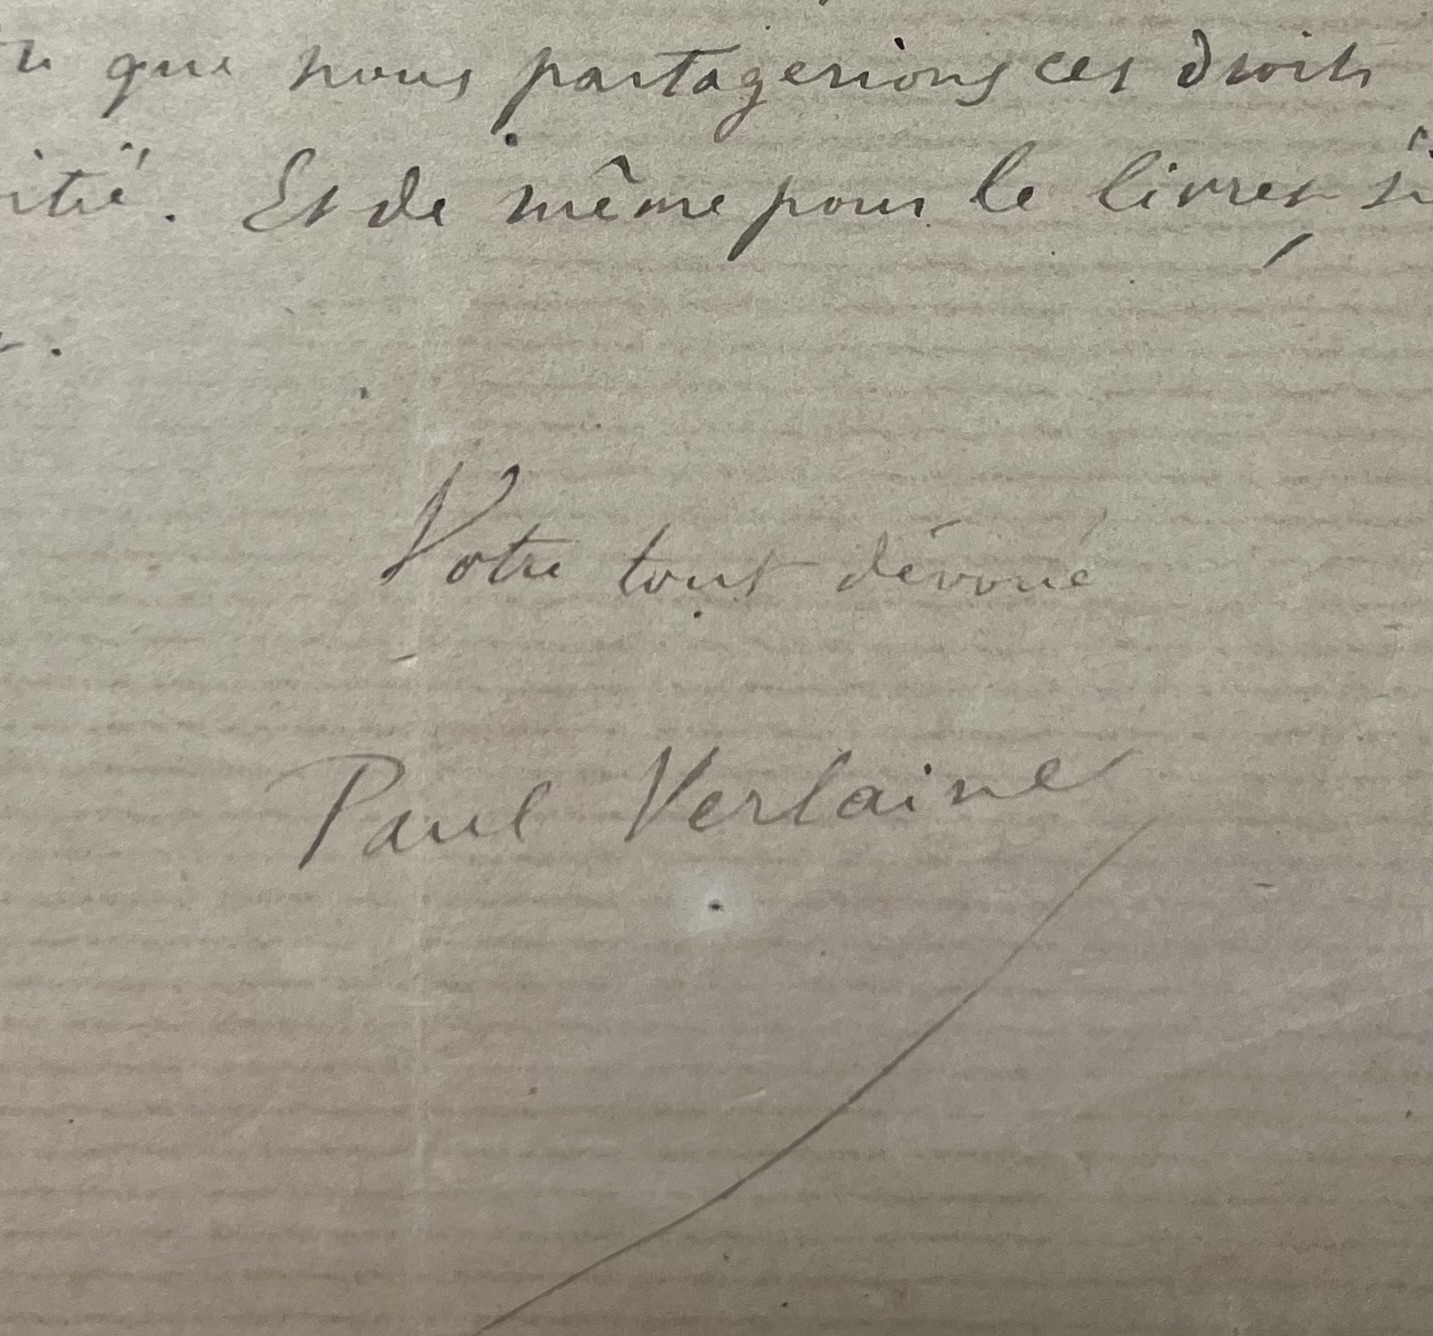 que nous partagerions ces droits
itié. Et de même pour le livre, si
Votre tout dévoué
Paul Verlaine